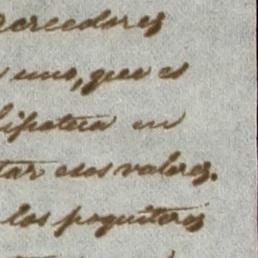 acreedores
uno, que es
hipoteca en
tar esos valores.
los